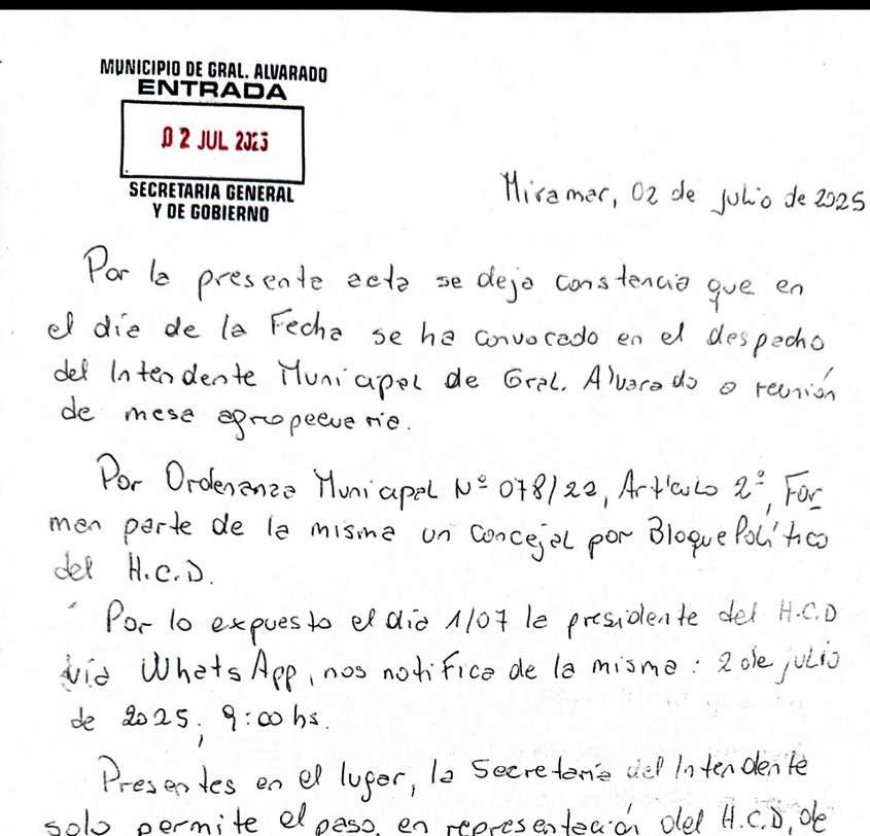 MUNICIPIO DE GRAL. ALVARADO
ENTRADA
02 JUL 2025
SECRETARIA GENERAL
Y DE GOBIERNO
Miramar, 02 de julio de 2025
Por la presente acta se deja constancia que en
el día de la Fecha se ha convocado en el despacho
del Intendente Municipal de Gral. Alvarado a reunión
de mesa agropecuaria.
Por Ordenanza Municipal Nº 078/22, Artículo 2º, For
man parte de la misma un concejal por Bloque Político
del H.C.D.
Por lo expuesto el día 1/07 la presidente del H.C.D
vía WhatsApp, nos notifica de la misma: 2 de julio
de 2025, 9:00 hs.
Presentes en el lugar, la Secretaria del Intendente
solo permite el paso, en representación del H.C.D, de